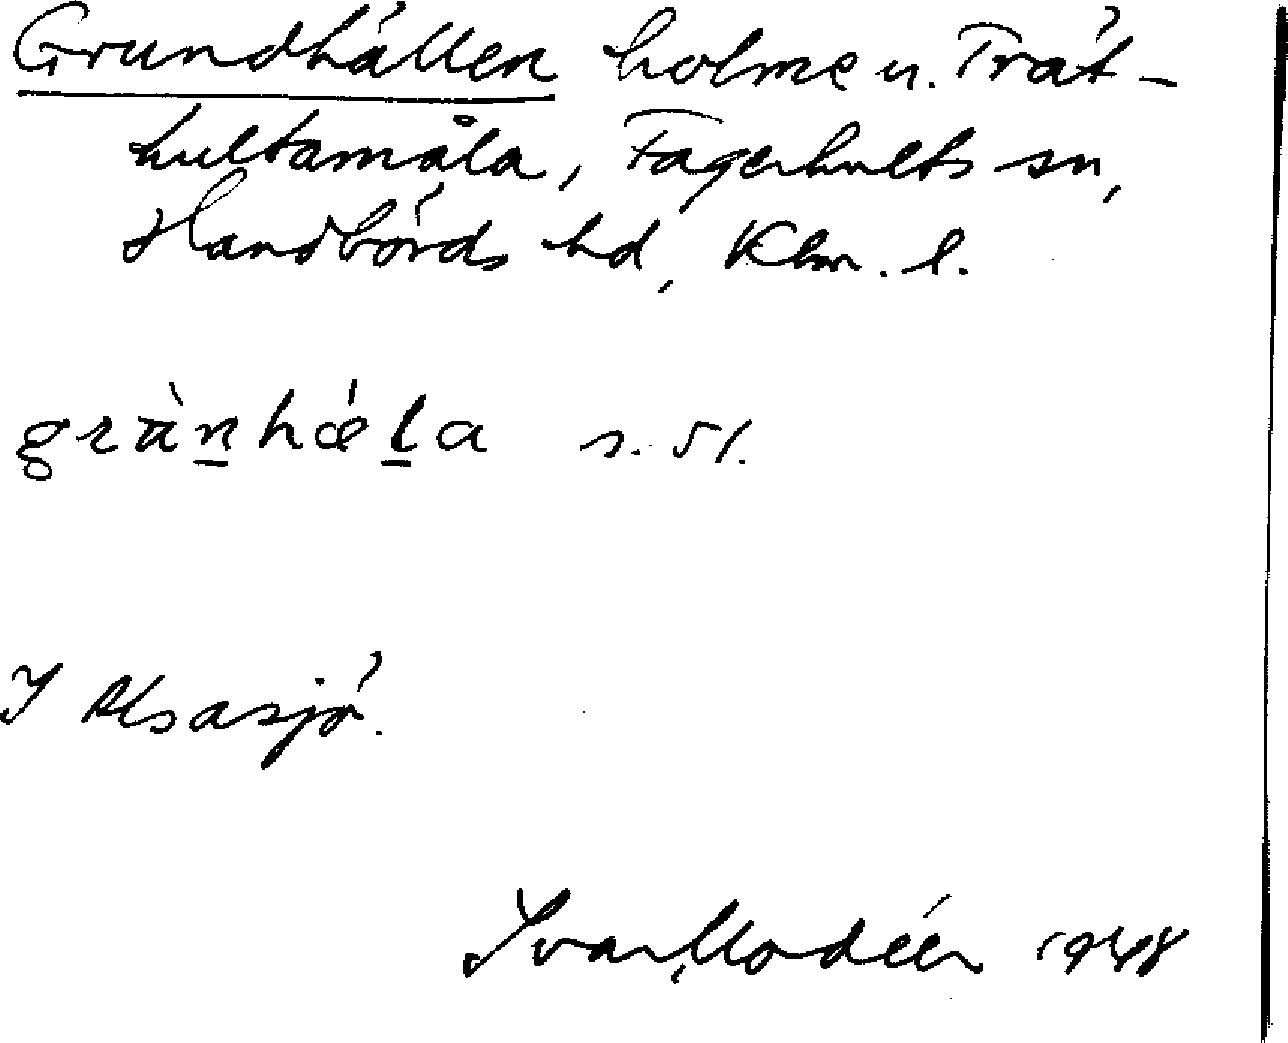 Grundhällen holme u. Trät-
hultamåla, Fagerhults sn,
Handbörds hd, Klm. l.
grùn̲hǽl̲a s. 51.
I Alsasjö.
Ivar Modéer 1948